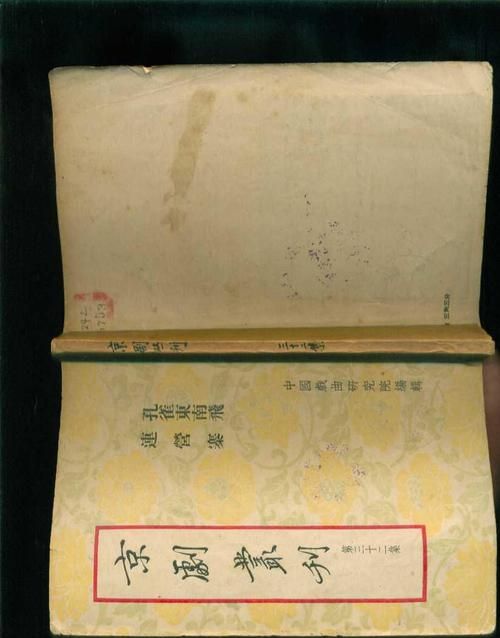 京劇叢刊 三十二集
中國戲曲研究院編輯
孔雀東南飛
連營寨
京劇叢刊 第三十二集